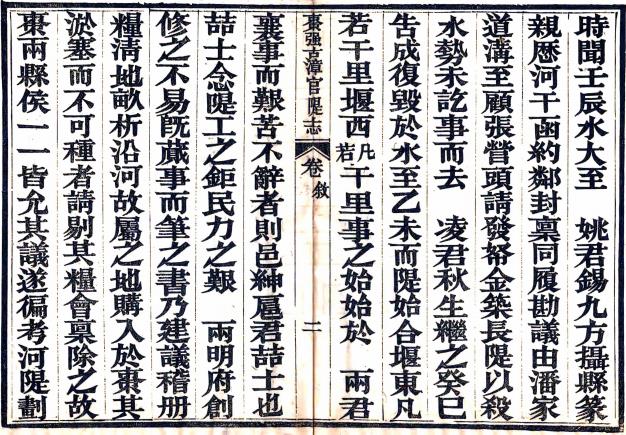 時聞壬辰水大至　姚君錫九方攝縣篆
親歷河干函約鄰封稟同履勘議由潘家
道溝至顧張營頭請發帑金築長隄以殺
水勢未訖事而去　凌君秋生繼之癸巳
告成復毀於水至乙未而隄始合堰東凡
若干里堰西凡若干里事之始始於　兩君
棗强古漳官隄志　卷敘　二
襄事而艱苦不辭者則邑紳扈君喆士也
喆士念隄工之鉅民力之艱　兩明府創
修之不易旣蕆事而筆之書乃建議稽册
糧清地畝析沿河故屬之地購入於棗其
淤塞而不可種者請剔其糧會稟除之故
棗兩縣侯一一皆允其議遂徧考河隄劃